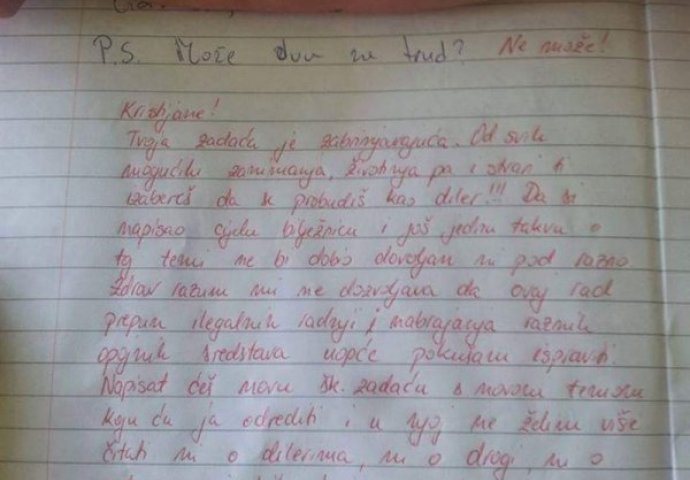 P.S. Može dva za trud? Ne može!
Kristijane!
Tvoja zadaća je zabrinjavajuća. Od svih
mogućih zanimanja, životinja pa i stvari ti
izabereš da se probudiš kao diler!!! Da si
napisao cijelu bilježnicu i još jednu takvu o
toj temi ne bi dobio dovoljan ni pod razno
Zdrav razum mi ne dozvoljava da ovaj rad
prepun ilegalnih radnji i nabrajanja raznih
opojnih sredstava uopće pokušam ispraviti.
Napisat ćeš novu šk. zadaću s novom temom
koju ću ja odrediti i u njoj ne želim više
čitati ni o dilerima, ni o drogi, ni o